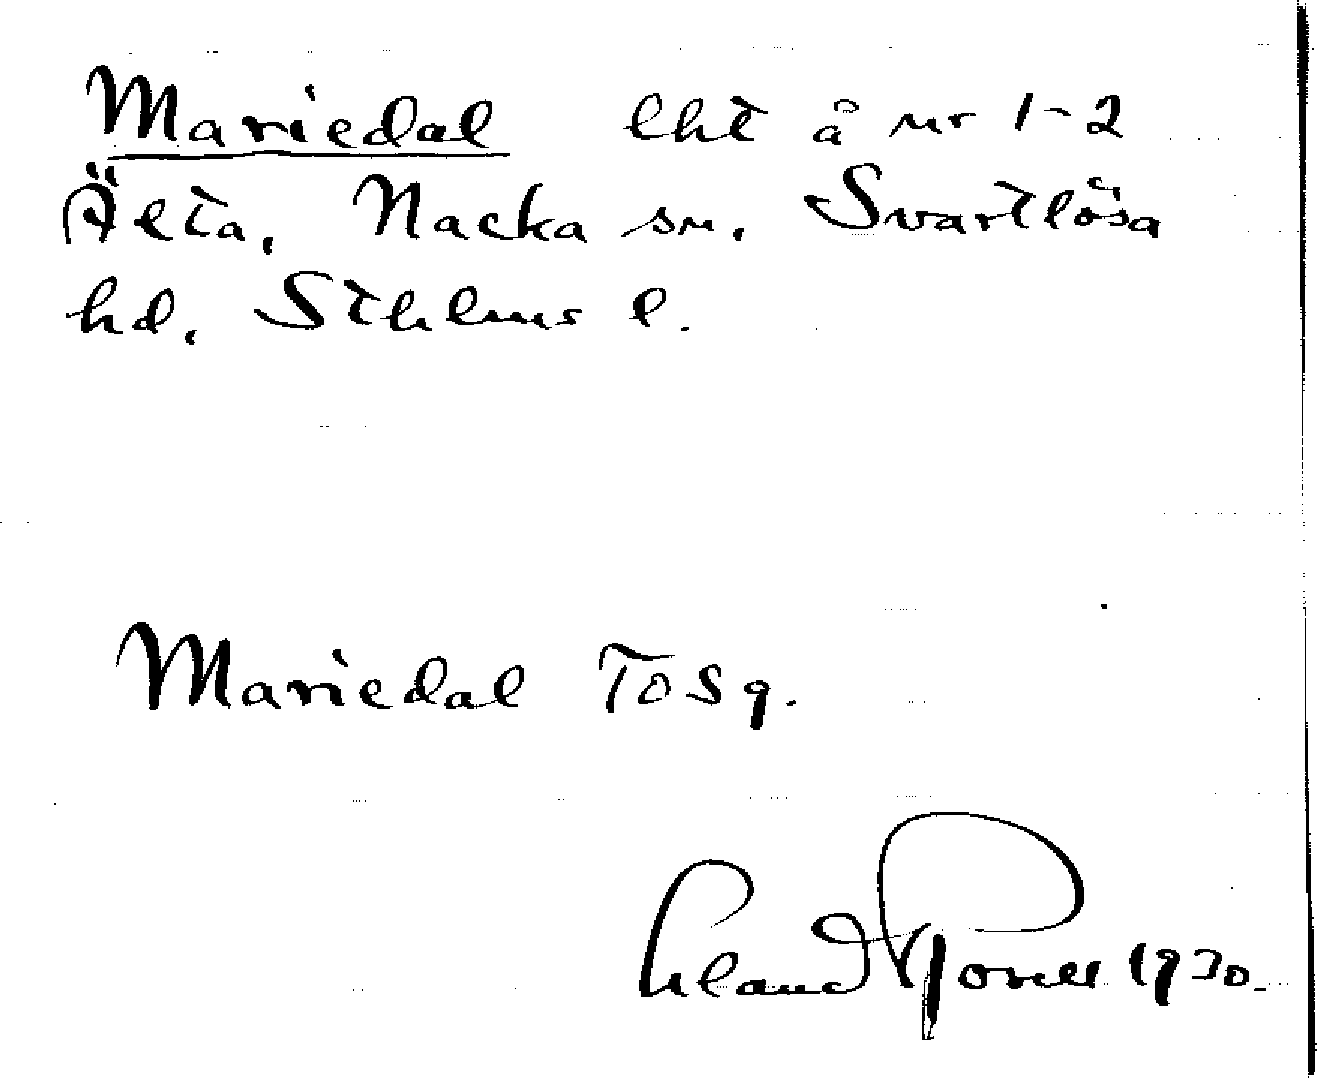 Mariedal lht å nr 1-2
Älta, Nacka sn, Svartlösa
hd, Sthlms l.
Mariedal TO S9.
Erland Rosell 1930.